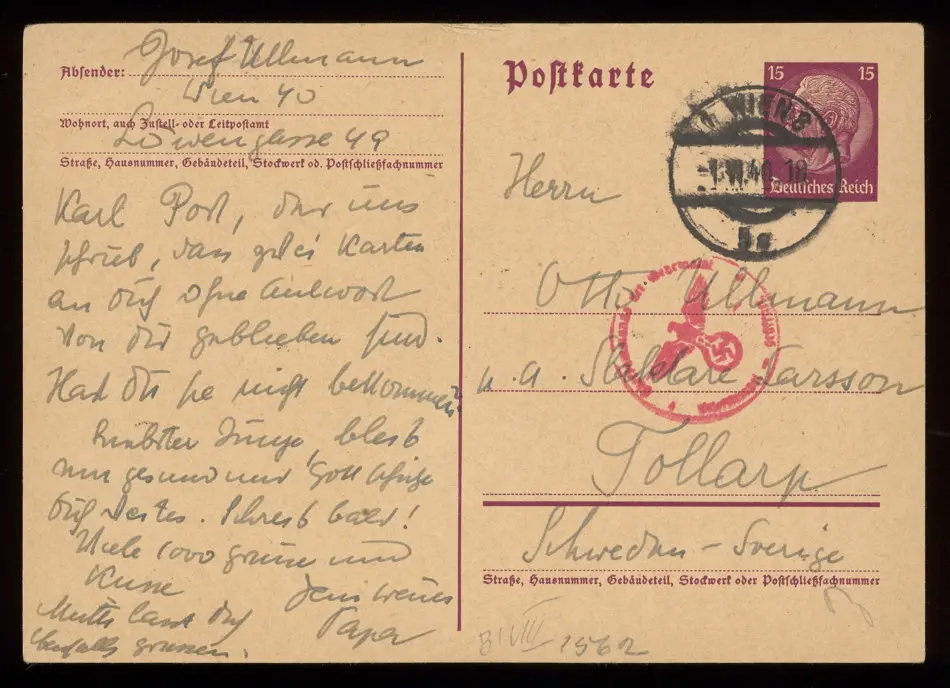 Absender: Josef Ullmann
Wien 40
Wohnort, auch Zustell- oder Leitpostamt
Löwengasse 49
Straße, Hausnummer, Gebäudeteil, Stockwerk od. Postschließfachnummer
Karl Post, der uns
schrieb, dass zwei Karten
an Dich ohne Antwort
von Dir geblieben sind.
Hast Du sie nicht bekommen?
Junge, bleib
nur gesund und Gott schütze
Dich weiter. Schreib bald!
Viele 1000 Grüsse und
Küsse Dein treuer
Papa
Mutti lässt Dich
ebenfalls grüssen.
Postkarte
15 15
Deutsches Reich
WIEN
VI.40.18
Herrn
Otto Ullmann
Larsson
Tollarp
Schweden - Sverige
Straße, Hausnummer, Gebäudeteil, Stockwerk oder Postschließfachnummer
1562